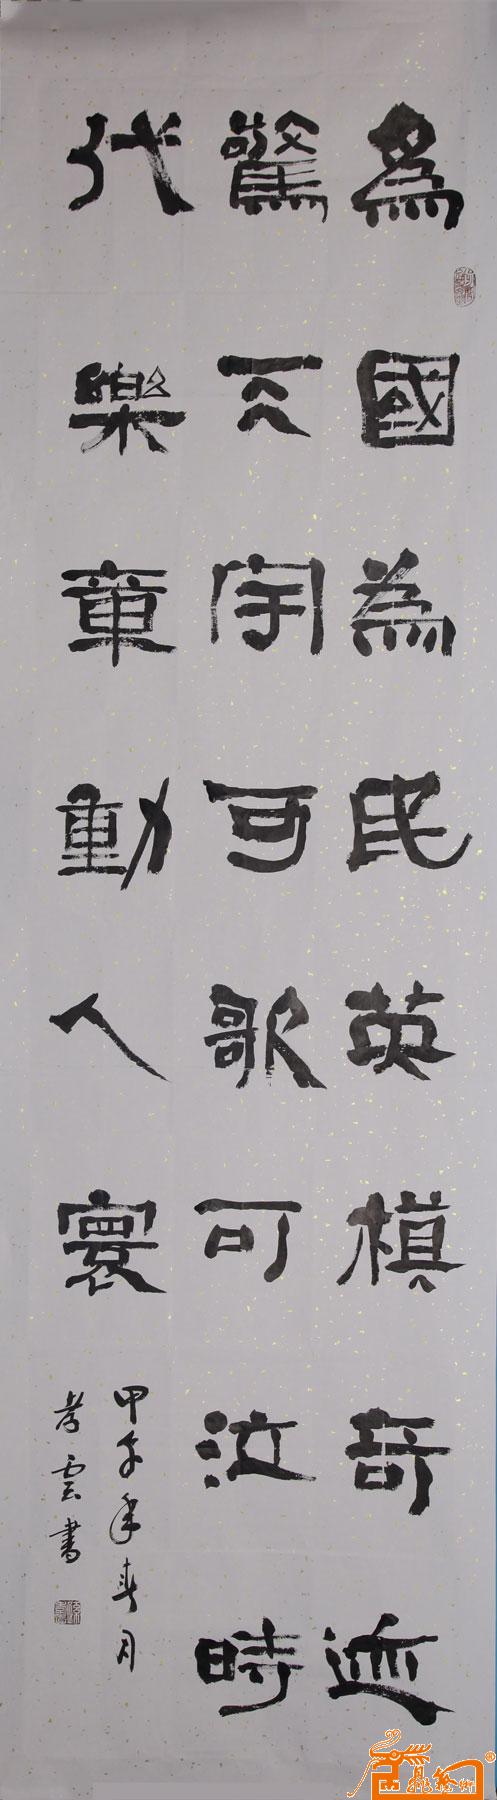 為國為民英模奇迹
驚天宇可歌可泣時
代樂章動人寰
甲午年春月
孝雲書